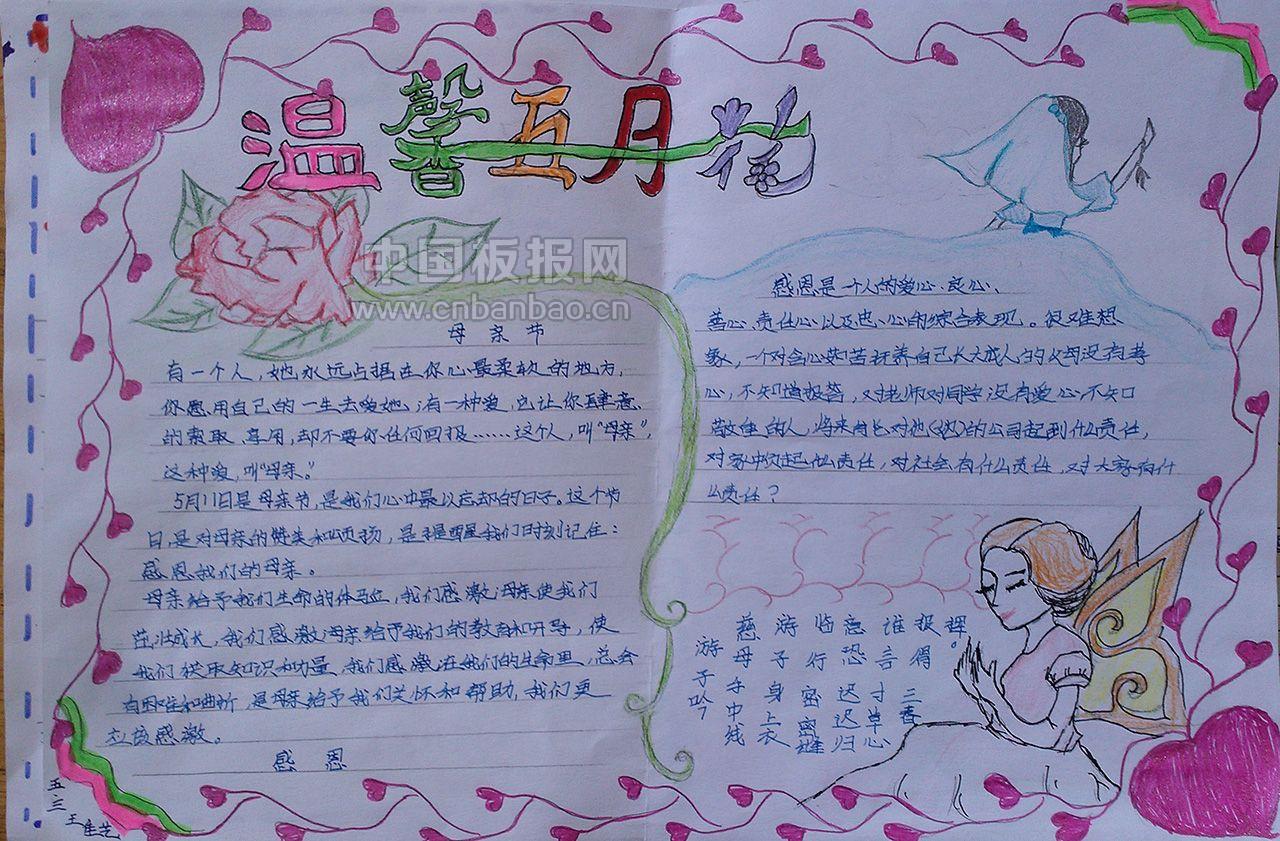 温馨五月花
中国板报网
www.cnbanbao.cn
母亲节
有一个人，她永远占据在你心最柔软的地方，
你愿用自己的一生去爱她；有一种爱，它让你肆意
的索取、享用，却不要你任何回报……这个人，叫“母亲”，
这种爱，叫“母亲。”
5月11日是母亲节，是我们心中最以忘却的日子。这个节
日，是对母亲的赞美和颂扬，是提醒我们时刻记住：
感恩我们的母亲。
母亲给予我们生命的体，我们感激母亲使我们
茁壮成长，我们感激母亲给予我们的教育和开导，使
我们获取知识和力量，我们感激在我们的生命里，总会
有困难和曲折，是母亲给予我们关怀和帮助，我们更
应该感激。
感恩
感恩是一个人的爱心、良心、
善心、责任心以及忠心的综合表现。很难想
象，一个对含心茹苦抚养自己长大成人的父母没有孝
心，不知道报答，对老师对同学没有爱心，不知
的人，将来肯对他(她)的公司起到什么责任，
对家中起什么责任，对社会有什么责任，对大家有什
么责任？
游子吟
慈母手中线
游子身上衣
临行密密缝
意恐迟迟归
谁言寸草心
报得三春晖
五三
王佳艺